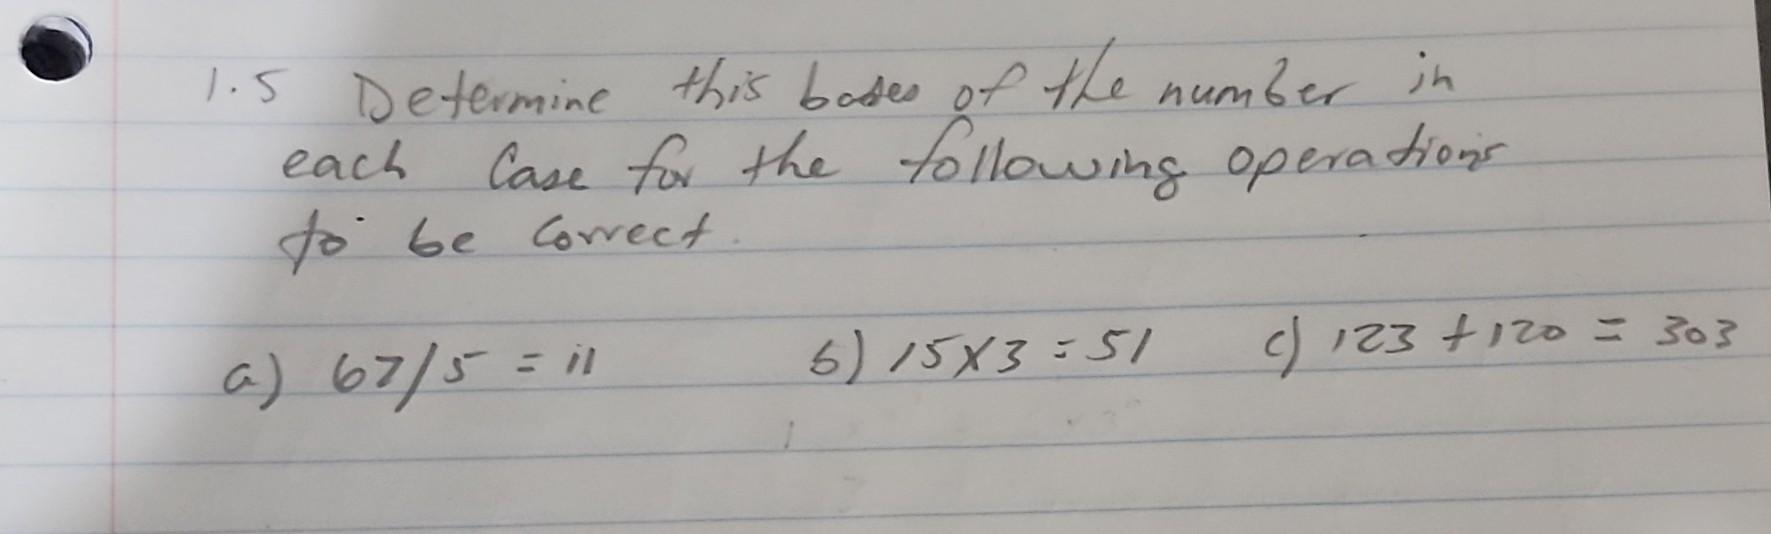 1.5 Determine this bases of the number in
each Case for the following operations
to be Correct.
a) 67/5 = 11 b) 15X3 = 51 c) 123 + 120 = 303